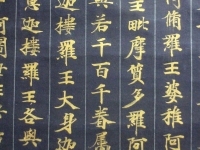 阿脩羅王婆稚阿
王毗摩質多羅阿
與若干百千眷屬
迦樓羅王大身迦
迦樓羅王各與